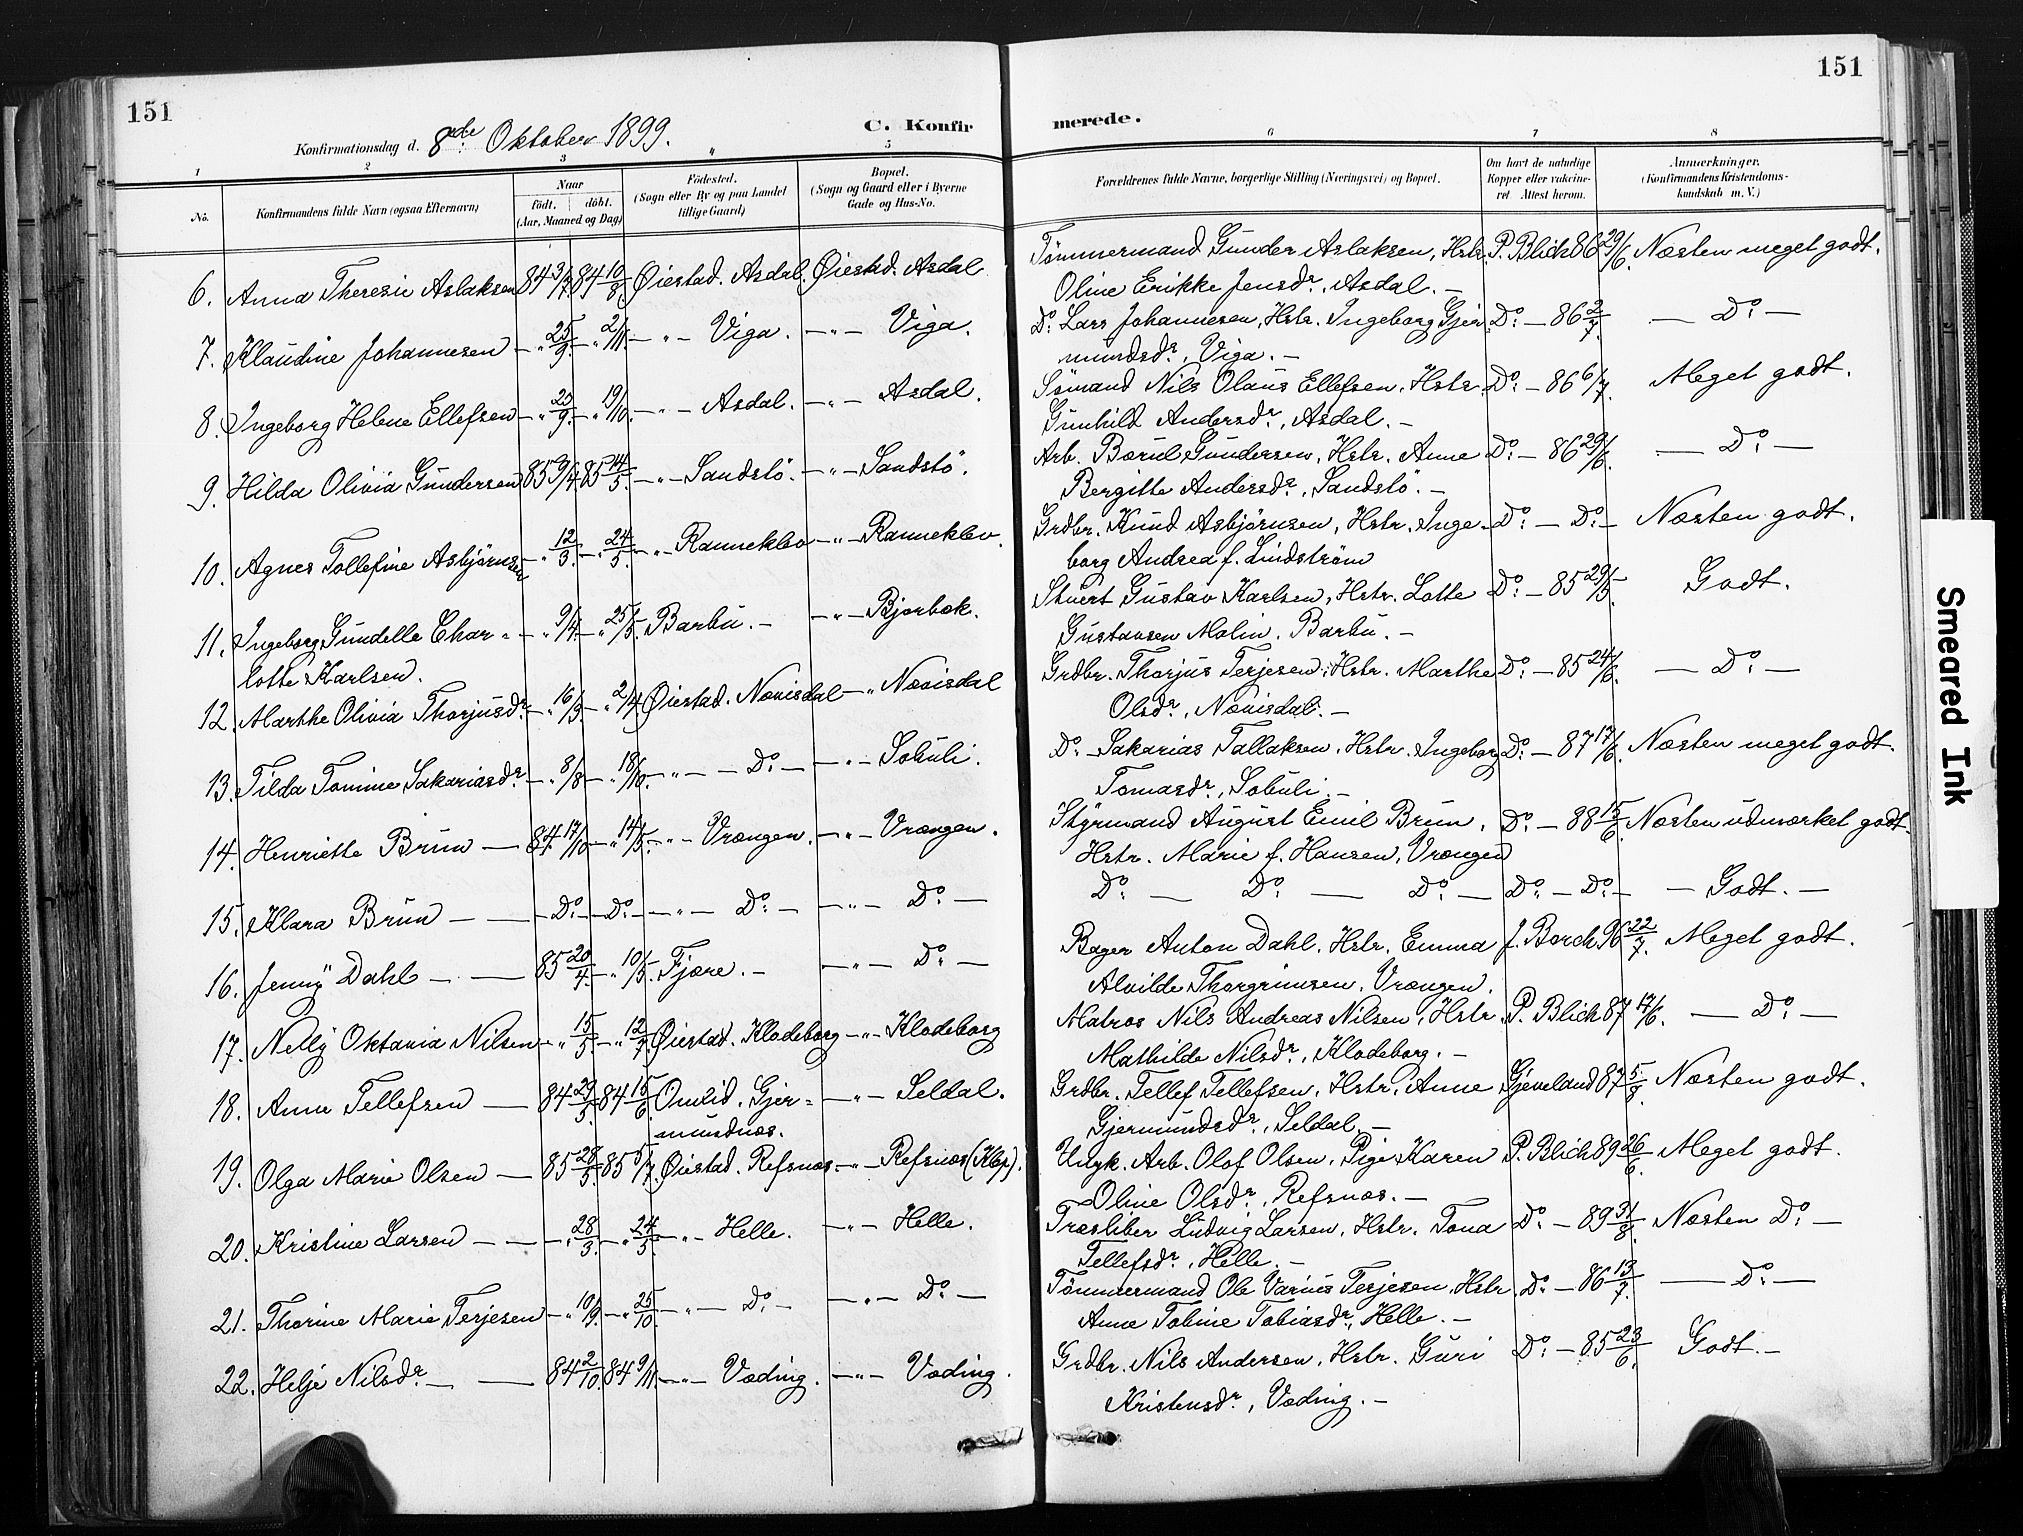 151
151
Konfirmationsdag d. 8de Oktober 1899. "
C. Konfir merede.
1 2 3 5 6 7 8
No.
Konfirmandens fulde Navn (ogsaa Efternavn)
Naar
födt. döbt.
(Aar, Maaned og Dag)
Födested.
(Sogn eller By og paa Landet
tillige Gaard)
Bopæl.
(Sogn og Gaard eller i Byerne
Gade og Hus-No.
Forældrenes fulde Navne, borgerlige Stilling (Næringsvei) og Bopæl.
Om havt de naturlige
Kopper eller vakcine-
ret. Attest herom.
Anmærkninger.
(Konfirmandens Kristendoms-
kundskab m. V.)
6. Anna Theresie Aslaksen 84 3/7. 84 10/8 Øiestad. Asdal. Øiestd. Asdal Tømmermand Gunder Aslaksen, Hstr. P. Blich 86 29/6. Næsten meget godt.
Oline Erikke Jensdr., Asdal. —
7. Klaudine Johannesen — „ 25/9. — „ 2/11. — „ — Viga. — „ — Viga. Do. Lars Johannesen, Hstr. Ingeborg Gjer- Do. — 86 2/7 — Do. —
mundsdr., Viga. —
8. Ingeborg Helene Ellefsen — „ 29/9. — „ 19/10. — „ — Asdal. — „ — Asdal. Sömand Nils Olaus Ellefsen, Hstr. Do. — 86 6/7. Meget godt.
Gunhild Andersdr., Asdal. —
9. Hilda Olivia Gundersen 85 9/4. 85 14/5. — „ — Sandstö. — „ — Sandstö. Arb. Börul Gundersen, Hstr. Anne Do. — 86 29/6. — Do. —
Bergitte Andersdr., Sandstö. —
10. Agnes Tollefine Asbjörnsen — „ 12/3. — „ 24/5. — „ — Ranneklev — „ — Ranneklev. Grdbr. Knud Asbjörnsen, Hstr. Inge- Do. — Do. — Næsten godt.
borg Andrea f. Lindström
11. Ingeborg Gundelle Char- — „ 9/4. — „ 25/5. Barbu. — — „ — Bjorbæk. Stuert Gustav Karlsen, Hstr. Lotte Do. — 85 29/5. Godt.
lotte Karlsen. Gustavsen Malin. Barbu. —
12. Marthe Olivia Thorjusdr. — „ 16/3. — „ 2/4. Øiestad. Næsisdal — „ Næsisdal Grdbr. Thorjus Terjesen, Hstr. Marthe Do. — 85 24/6. — Do. —
Olsdr., Næsisdal. —
13. Tilda Tomine Sakariasdr. — „ 8/8 — „ 18/10. — „ — — Do. — — „ — Solsuli. Do. — Sakarias Tallaksen, Hstr. Ingeborg Do. — 87 17/6. Næsten meget godt.
Tomasdr., Solsuli. —
14. Henriette Brun — 84. 17/10 — „ 14/5. — „ — Vrængen. — „ — Vrængen. Styrmand August Emil Brun, Do. — 88 15/6. Næsten udmærket godt.
Hstr. Marie f. Hansen, Vrængen
15. Klara Brun — — — Do. — — Do. — — „ — Do. — — „ — Do. — Do. — Do. — Do. — Do. — Do. — — Godt. —
16. Jenny Dahl — — 85 20/4. — „ 10/5. Fjære. — — „ — Do. — Bager Anton Dahl. Hstr. Emma f. Borch 96 22/7. Meget godt.
Alvilde Thorgrimsen, Vrængen.
17. Nelly Oktavia Nilsen — „ 15/5. — „ 12/7. Øiestad. Klodeborg — „ — Klodeborg Matros Nils Andreas Nilsen, Hstr. P. Blich 87 17/6. — Do. —
Mathilde Nilsdr., Klodeborg. —
18. Anne Tellefsen — 84 29/5. 84 15/6 Omlid. Gjer- — „ — Seldal. Grdbr. Tellef Tellefsen, Hstr. Anne Gjeveland 87 5/8. Næsten godt.
mundnæs. Gjermundsdr., Seldal. —
19. Olga Marie Olsen — 85 28/5. 85 5/7. Øiestad. Refsnæs. — „ — Refsnæs (Klep). Ungk. Arb. Olof Olsen, Pige Karen P. Blich 89 26/6 Meget godt.
Oline Olsdr., Refsnæs. —
20. Kristine Larsen — — — „ 28/3. — „ 24/5. — „ — Helle. — „ — Helle. Træsliber Ludvig Larsen, Hstr. Tona Do. — 89 31/8. Næsten Do. —
Tellefsdr., Helle. —
21. Thorine Marie Terjesen — „ 10/9. — „ 25/10. — „ — Do. — — „ — Do. — Tömmermand Ole Varius Terjesen, Hstr. Do. — 86 13/7. — Do. —
Anne Tobine Tobiasdr., Helle. —
22. Helje Nilsdr. — — 84 2/10. 84 9/11. — „ — Vöding. — „ — Vöding. Grdbr. Nils Andersen, Hstr. Guri Do. — 85 23/6. Godt. —
Kristensdr., Vöding. —
Smeared Ink